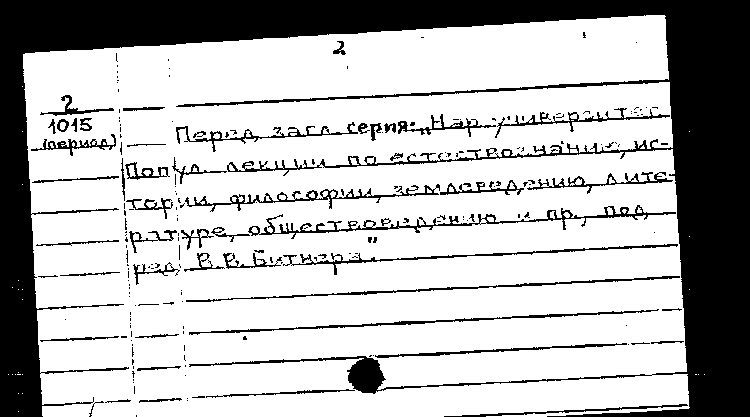 2
2
1015
(период)
Перед загл. серия: „Нар. университет.
Попул. лекции по естествознанию, ис-
тории, философии, землеведению, лите-
ратуре, обществоведению и пр., под
ред. В.В. Битнера".